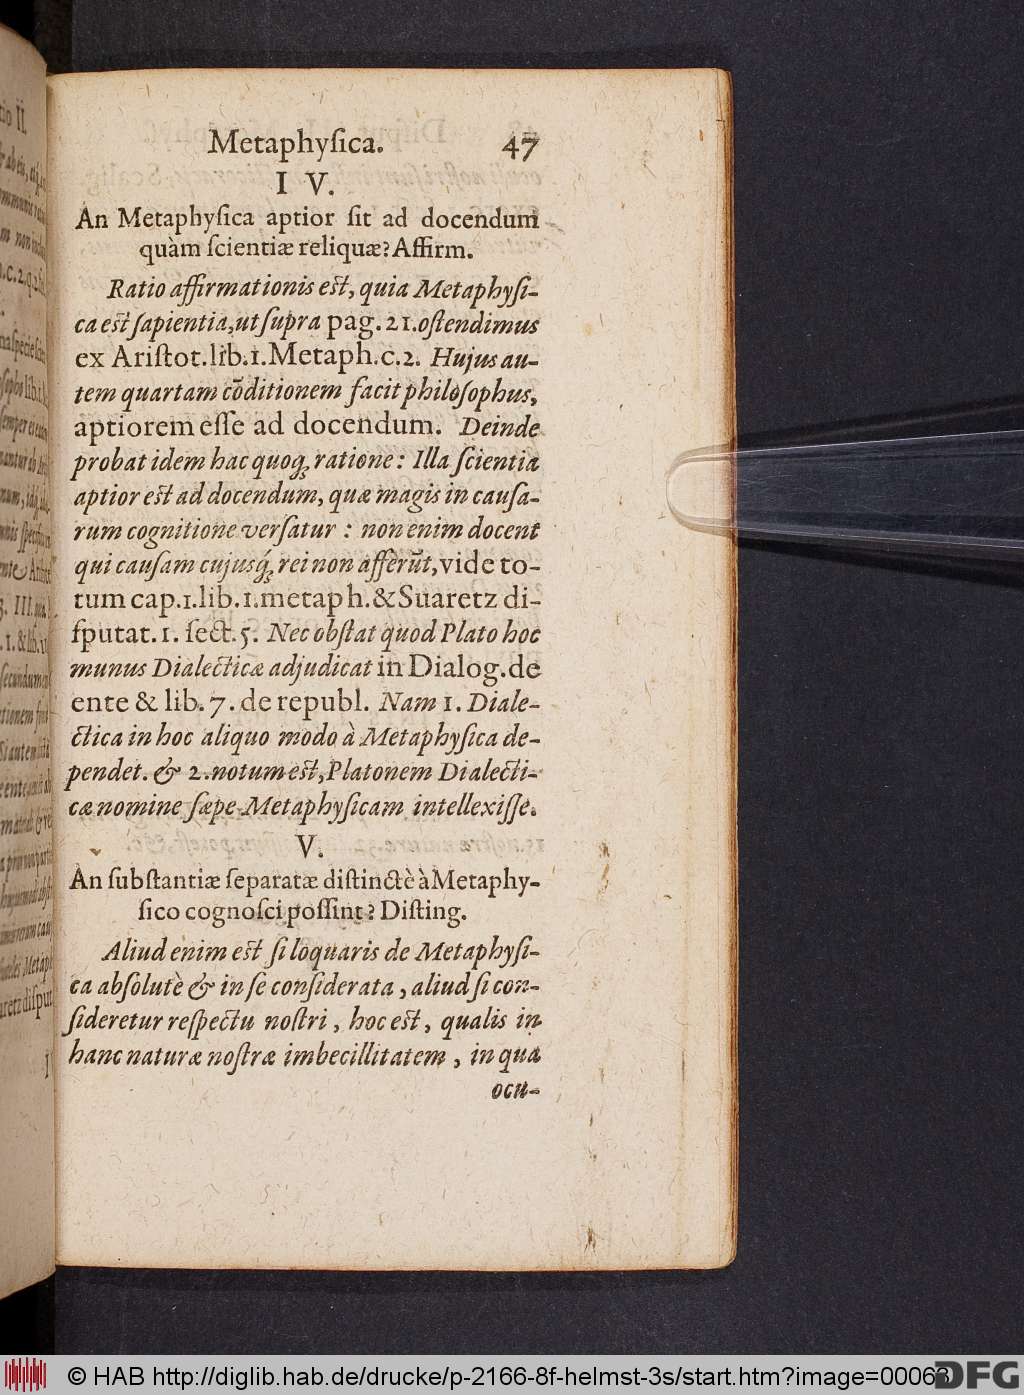 Metaphyſica. 47
I V.
An Metaphyſica aptior ſit ad docendum
quàm ſcientiæ reliquæ? Affirm.
Ratio affirmationis eſt, quia Metaphyſi-
ca eſt ſapientia, ut ſupra pag. 21. oſtendimus
ex Ariſtot. lib. 1. Metaph. c. 2. Hujus au-
tem quartam cõditionem facit philoſophus,
aptiorem eſſe ad docendum. Deinde
probat idem hac quoq́; ratione: Illa ſcientia
aptior eſt ad docendum, quæ magis in cauſa-
rum cognitione verſatur: non enim docent
qui cauſam cujusq́; rei non afferũt, vide to-
tum cap. 1. lib. 1. metaph. & Suaretz di-
ſputat. 1. ſect. 5. Nec obſtat quod Plato hoc
munus Dialecticæ adjudicat in Dialog. de
ente & lib. 7. de republ. Nam 1. Diale-
ctica in hoc aliquo modo à Metaphyſica de-
pendet. & 2. notum eſt, Platonem Dialecti-
cæ nomine ſæpe Metaphyſicam intellexiſſe.
V.
An ſubſtantiæ ſeparatæ diſtinctè à Metaphy-
ſico cognoſci poſſint? Diſting.
Aliud enim eſt ſi loquaris de Metaphyſi-
ca abſolutè & in ſe conſiderata, aliud ſi con-
ſideretur reſpectu noſtri, hoc eſt, qualis in
hanc naturæ noſtræ imbecillitatem, in qua
ocu-
© HAB http://diglib.hab.de/drucke/p-2166-8f-helmst-3s/start.htm?image=00063
DFG